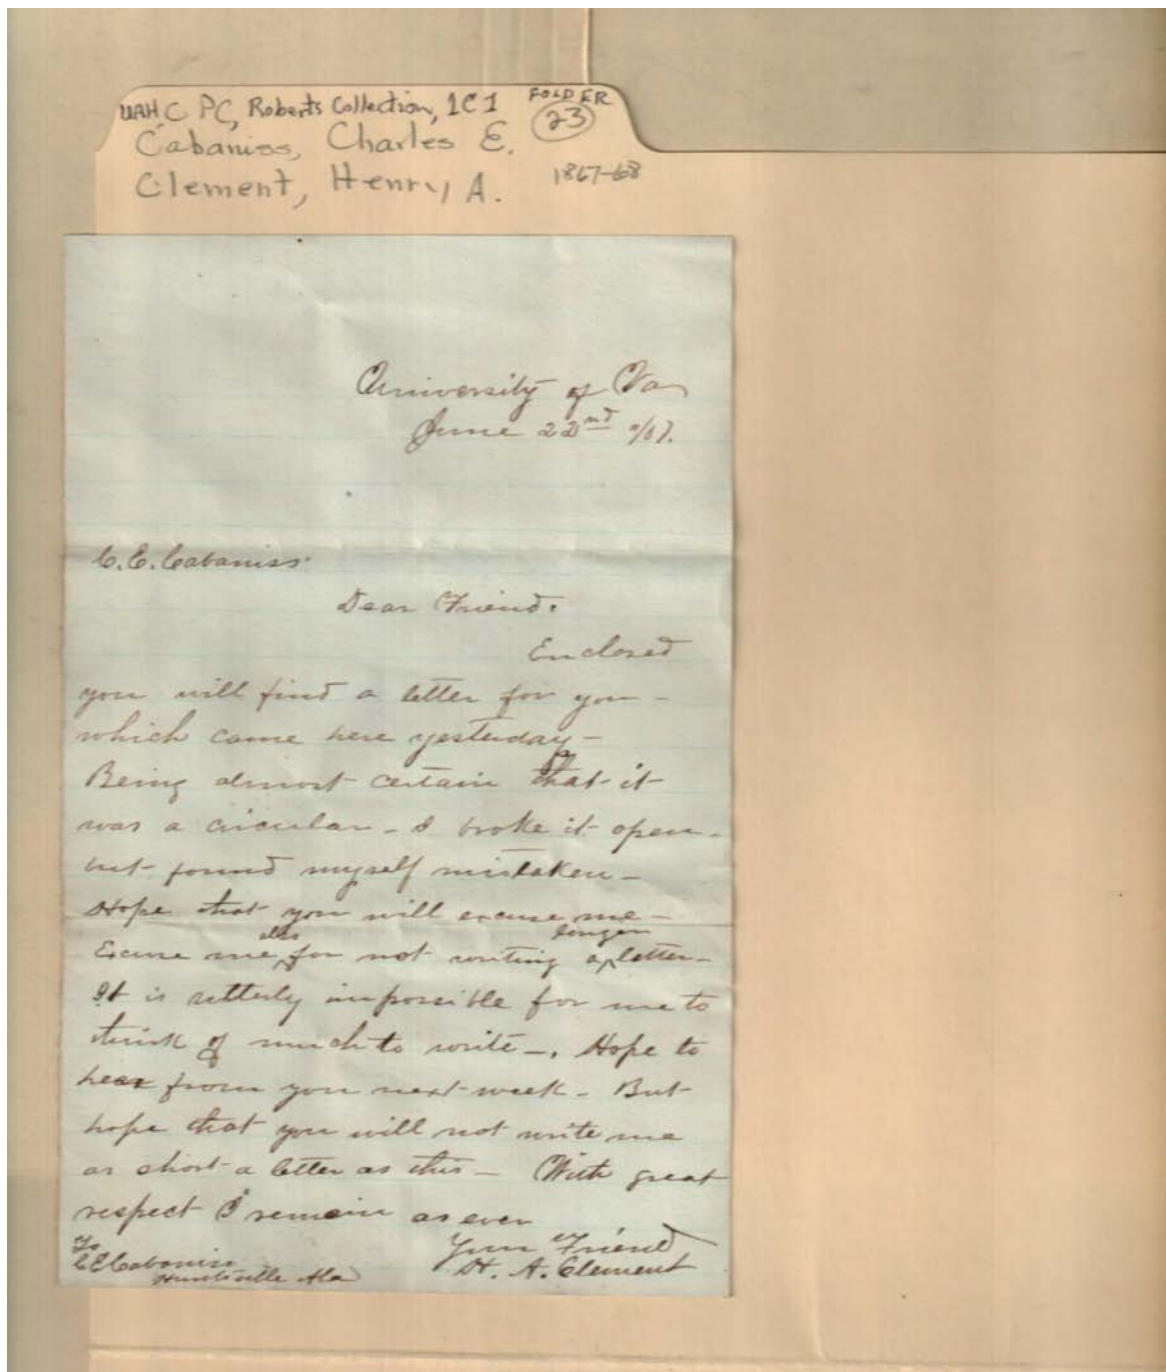 UAHC PC, Roberts Collection, 1C1 FOLDER 23
Cabaniss, Charles E.
Clement, Henry A. 1867-68
University of Va
June 22nd /67.
C. E. Cabaniss.
Dear Friend.
Enclosed
you will find a letter for you -
which came here yesterday -
Being almost certain that it
was a circular - I broke it open -
but found myself mistaken -
Hope that you will excuse me -
Excuse me also for not writing a longer letter -
It is utterly impossible for me to
think of much to write -. Hope to
hear from you next week - But
hope that you will not write me
as short a letter as this - With great
respect I remain as ever
Your Friend
H. A. Clement
To
C E Cabaniss
Huntsville Ala